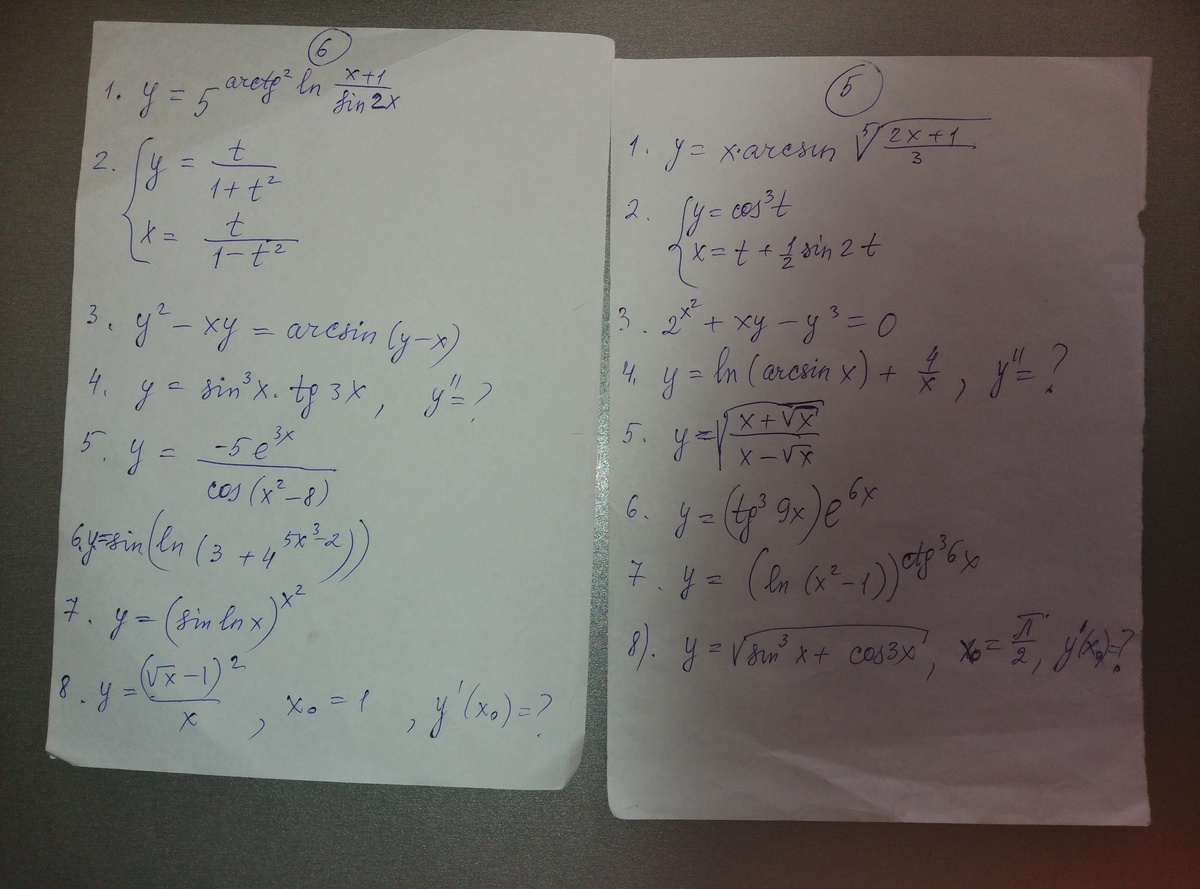 6
1. y = 5^(arctg² ln (x+1)/(sin 2x))
2. { y = t/(1+t²)
x = t/(1-t²)
3. y² - xy = arcsin (y-x)
4. y = sin³x · tg 3x, y'' = ?
5. y = -5e^(3x)/cos(x²-8)
6. y = sin(ln(3 + 4^(5x³-2)))
7. y = (sin ln x)^(x²)
8. y = (√x-1)²/x, x₀ = 1, y'(x₀) = ?
5
1. y = x·arcsin ⁵√((2x+1)/3)
2. { y = cos³t
x = t + ½ sin 2t
3. 2^(x²) + xy - y³ = 0
4. y = ln(arcsin x) + 4/x, y'' = ?
5. y = √((x+√x)/(x-√x))
6. y = (tg³ 9x)e^(6x)
7. y = (ln (x²-1))^(ctg³6x)
8). y = √(sin³x + cos3x), x₀ = π/2, y'(x₀) = ?